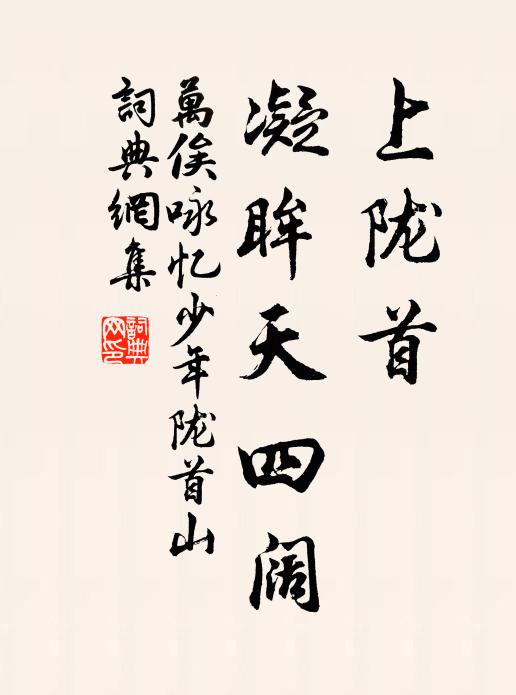 上陇首
凝眸天四阔
萬俟咏忆少年陇首山
詞典網集
詞典网印